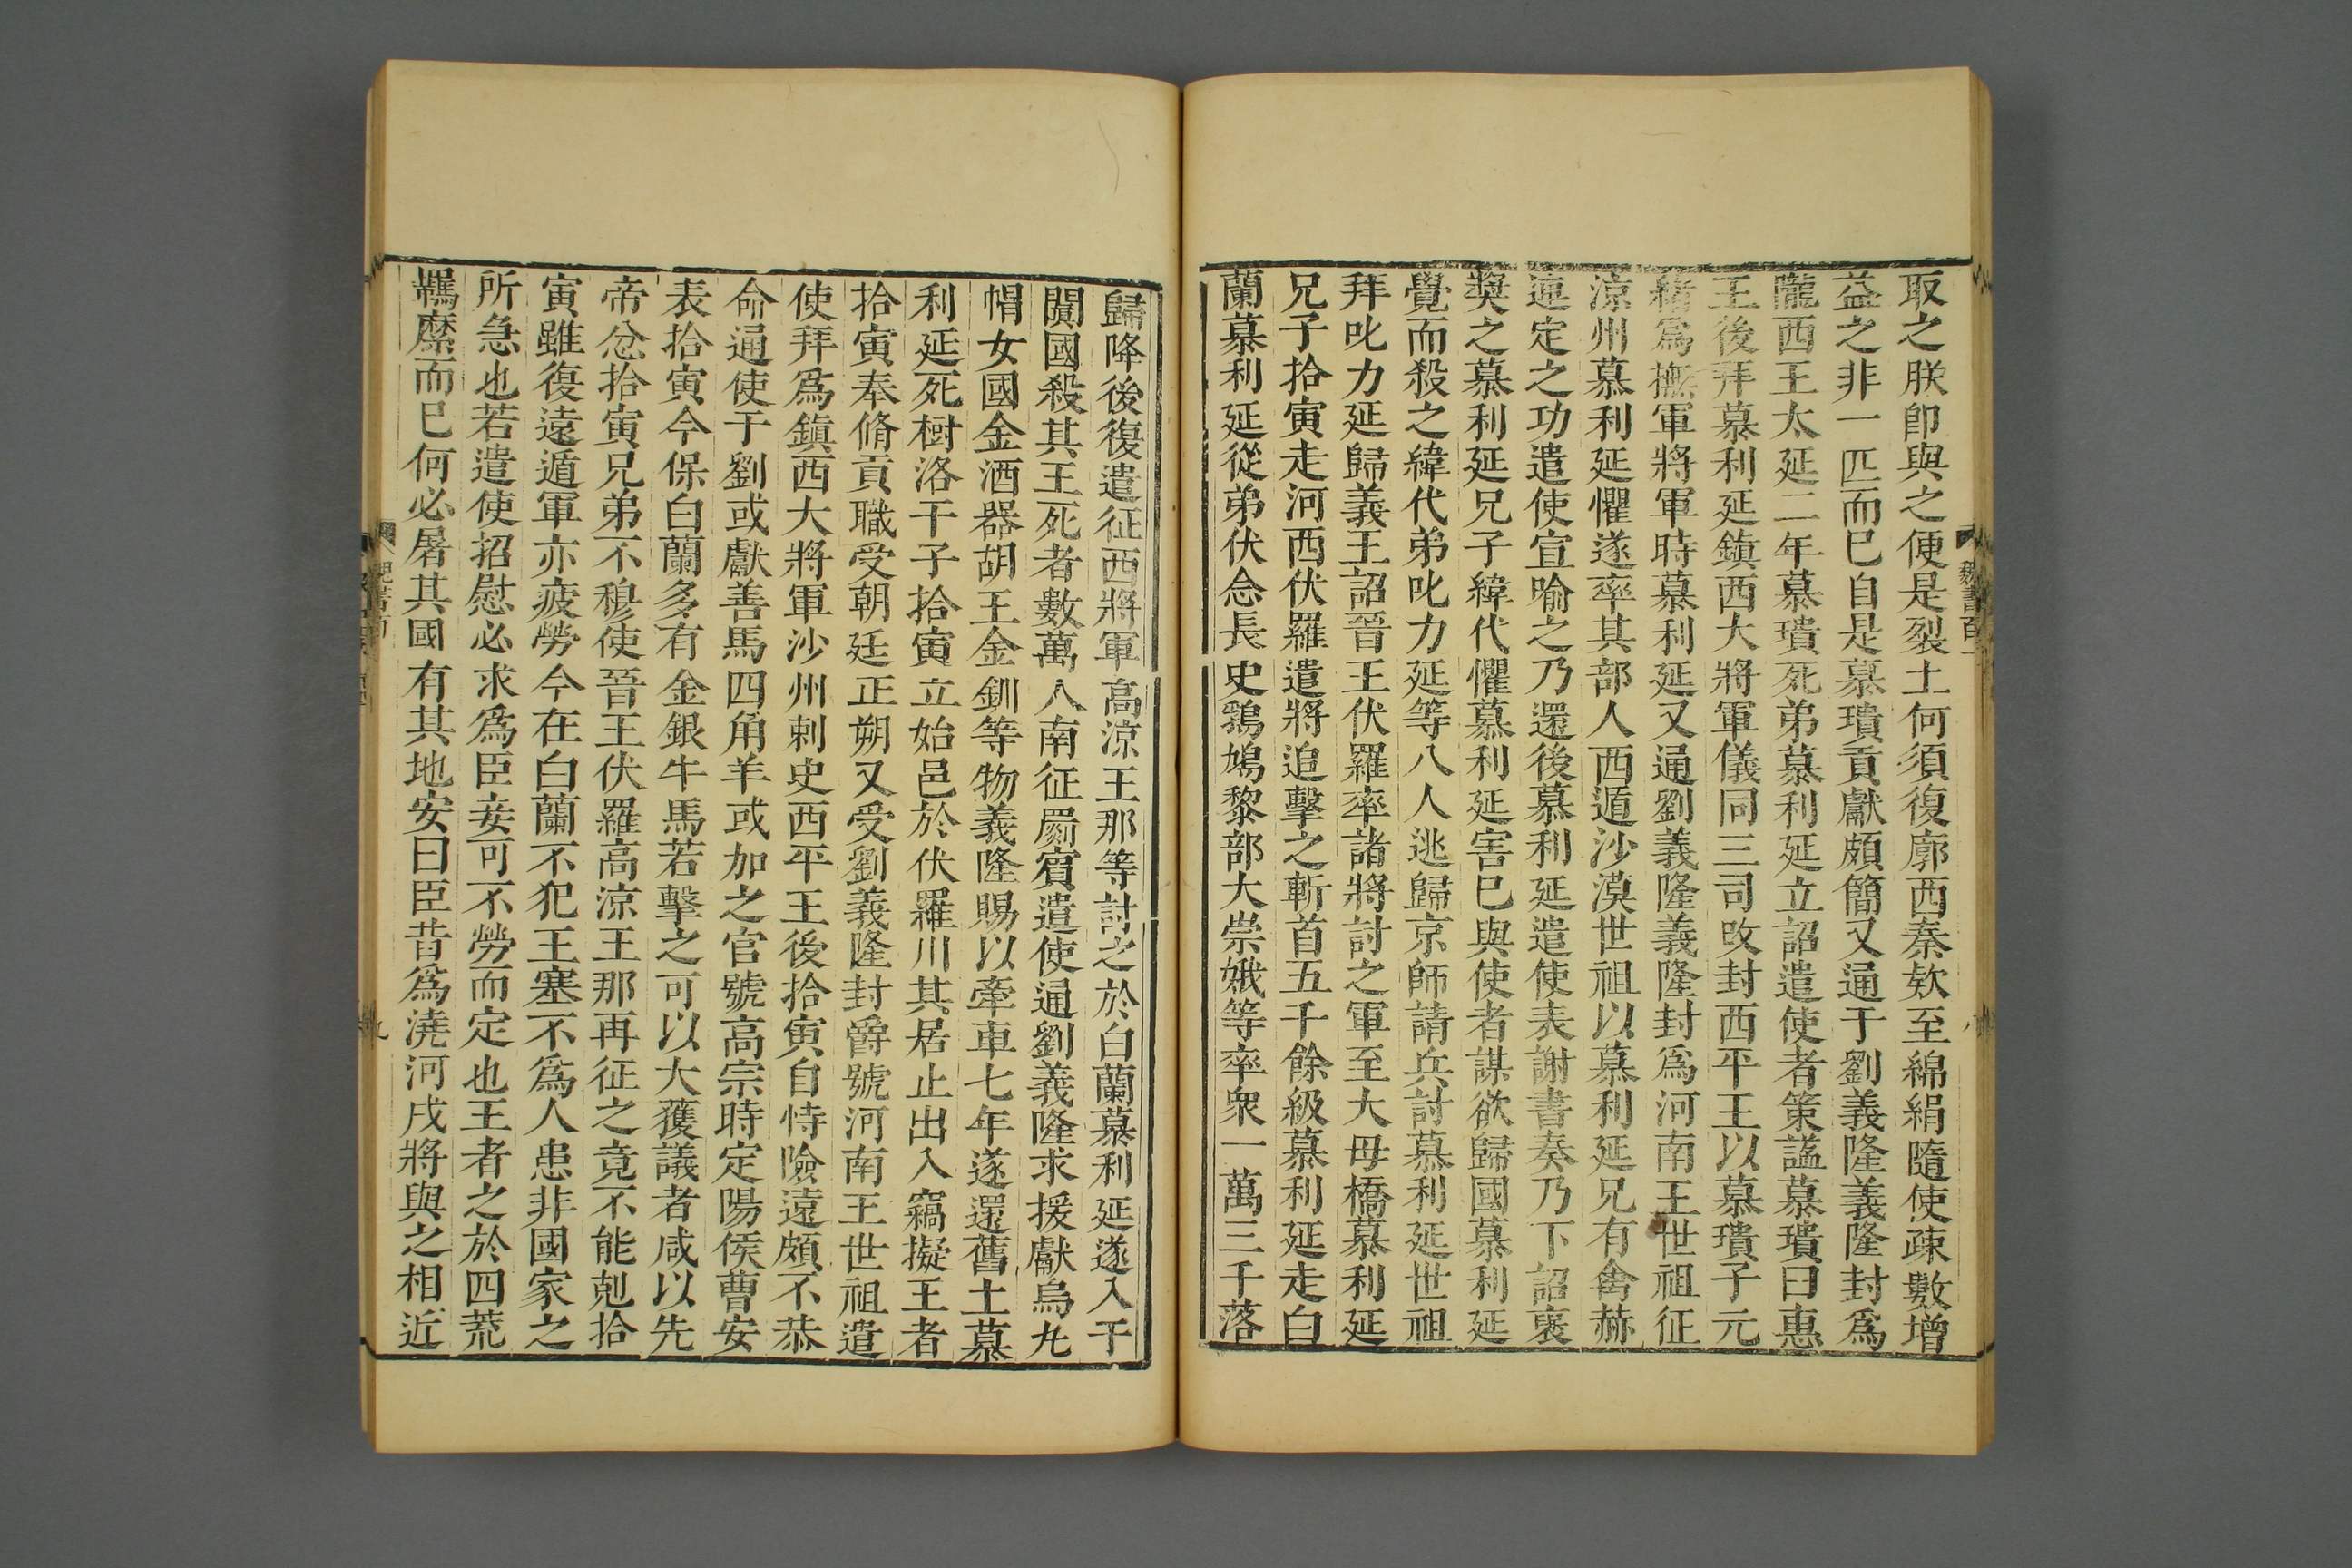 取之朕卽與之便是裂土何須復廓西秦欵至綿絹隨使疎數增
益之非一匹而巳自是慕璝貢獻頗簡又通于劉義隆義隆封爲
隴西王太延二年慕璝死弟慕利延立詔遣使者策謚慕璝曰惠
王後拜慕利延鎭西大將軍儀同三司攺封西平王以慕璝子元
緒爲撫軍將軍時慕利延又通劉義隆義隆封爲河南王世祖征
涼州慕利延懼遂率其部人西遁沙漠世祖以慕利延兄有禽赫
連定之功遣使宣喻之乃還後慕利延遣使表謝書奏乃下詔襃
奬之慕利延兄子緯代懼慕利延害巳與使者謀欲歸國慕利延
覺而殺之緯代弟叱力延等八人逃歸京師請兵討慕利延世祖
拜叱力延歸義王詔晉王伏羅率諸將討之軍至大母橋慕利延
兄子拾寅走河西伏羅遣將追擊之斬首五千餘級慕利延走白
蘭慕利延從弟伏念長史鵶鳩黎部大崇娥等率衆一萬三千落
魏書百一
八
歸降後復遣征西將軍高涼王那等討之於白蘭慕利延遂入于
闐國殺其王死者數萬人南征罽賓遣使通劉義隆求援獻烏丸
帽女國金酒器胡王金釧等物義隆賜以牽車七年遂還舊土慕
利延死樹洛干子拾寅立始邑於伏羅川其居止出入竊擬王者
拾寅奉脩貢職受朝廷正朔又受劉義隆封爵號河南王世祖遣
使拜爲鎭西大將軍沙州刺史西平王後拾寅自恃險遠頗不恭
命通使于劉彧獻善馬四角羊彧加之官號高宗時定陽侯曹安
表拾寅今保白蘭多有金銀牛馬若擊之可以大獲議者咸以先
帝忿拾寅兄弟不穆使晉王伏羅高涼王那再征之竟不能剋拾
寅雖復遠遁軍亦疲勞今在白蘭不犯王塞不爲人患非國家之
所急也若遣使招慰必求爲臣妾可不勞而定也王者之於四荒
羈縻而巳何必屠其國有其地安曰臣昔爲澆河戍將與之相近
九